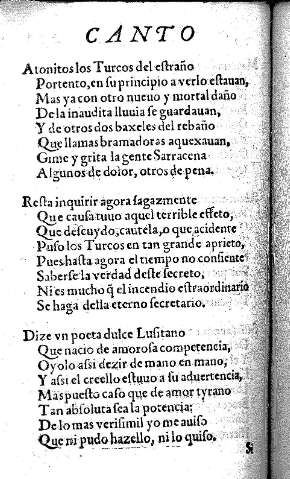 CANTO
Atonitos los Turcos del estraño
Portento, en su principio a verlo estauan,
Mas ya con otro nueuo y mortal daño
De la inaudita lluuia se guardauan,
Y de otros dos baxeles del rebaño
Que llamas bramadoras aquexauan,
Gime y grita la gente Sarracena
Algunos de dolor, otros de pena.
Resta inquirir agora sagazmente
Que causa tuuo aquel terrible effeto,
Que descuydo, cautela, o que acidente
Puso los Turcos en tan grande aprieto,
Pues hasta agora el tiempo no consiente
Saberse la verdad deste secreto,
Ni es mucho q̃ el incendio estraordinario
Se haga della eterno secretario.
Dize vn poeta dulce Lusitano
Que nacio de amorosa competencia,
Oyolo assi dezir de mano en mano,
Y assi el creello estuuo a su aduertencia,
Mas puesto caso que de amor tyrano
Tan absoluta sea la potencia;
De lo mas verisimil yo me auiso
Que ni pudo hazello, ni lo quiso.
Si